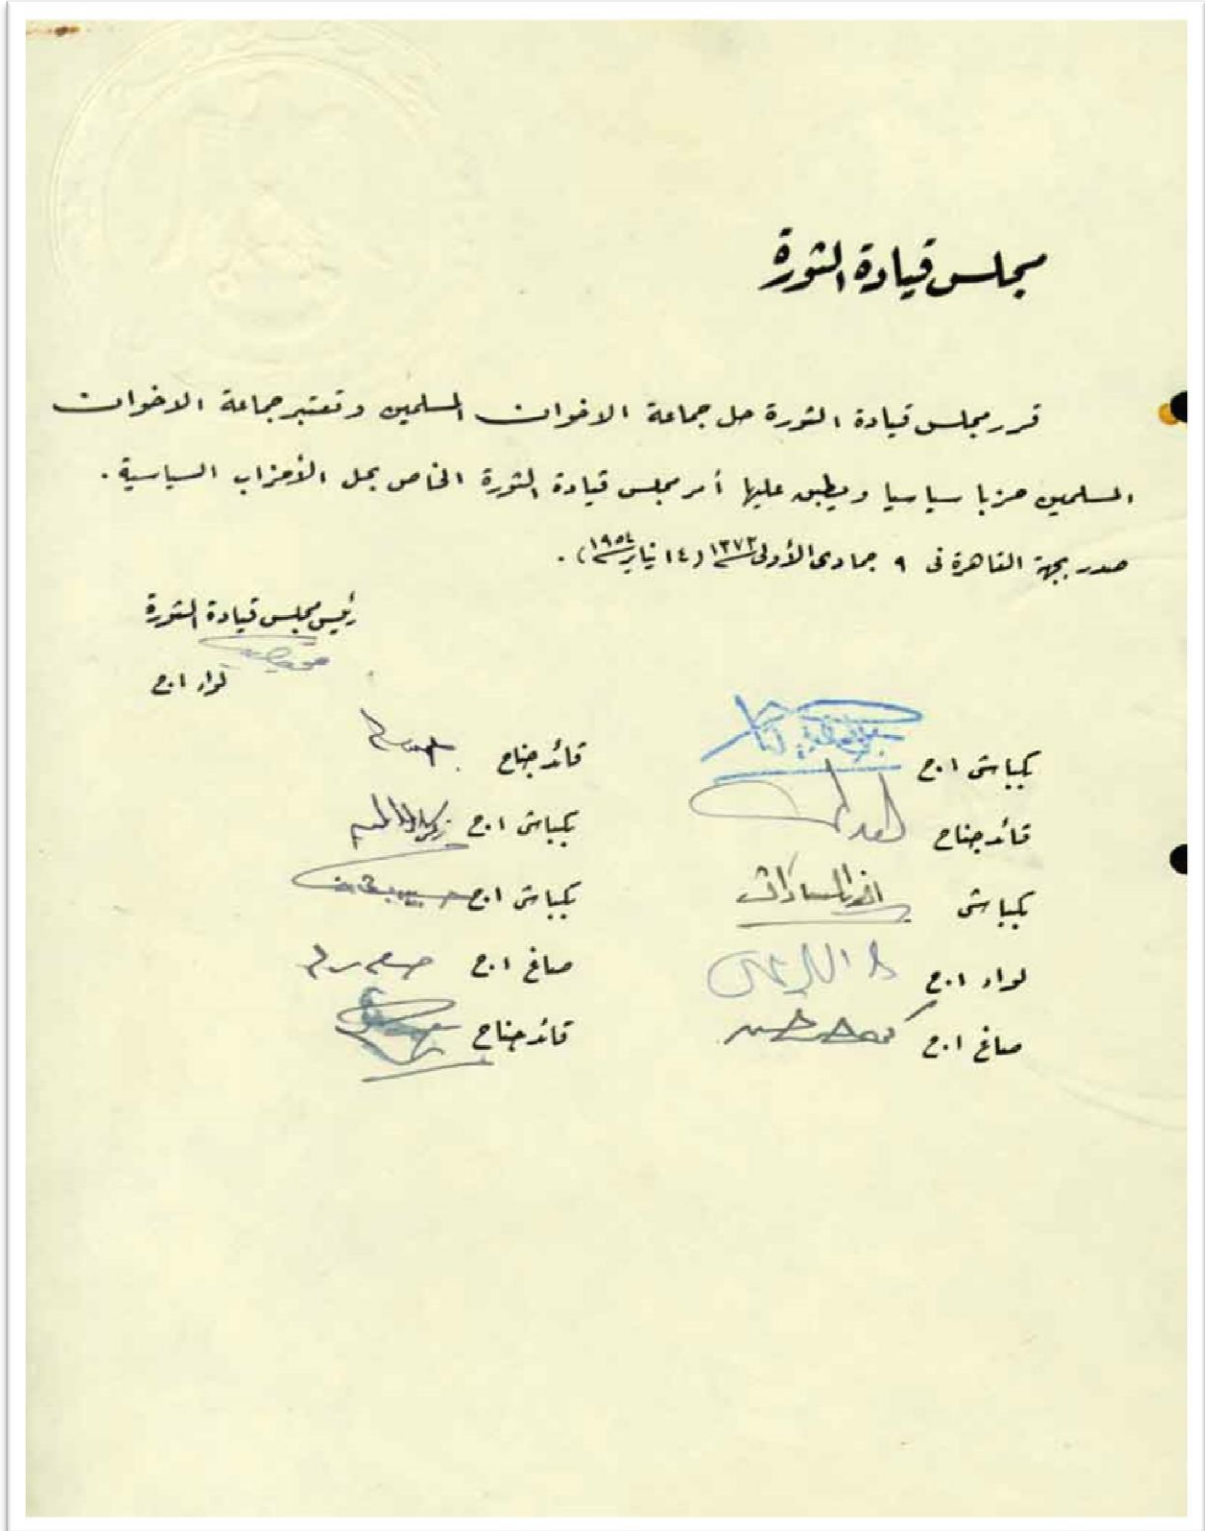 مجلس قيادة الثورة
قرر مجلس قيادة الثورة حل جماعة الاخوان المسلمين وتعتبر جماعة الاخوان
المسلمين حزبا سياسيا ويطبق عليها أمر مجلس قيادة الثورة الخاص بحل الأحزاب السياسية .
صدر بجهة القاهرة فى ٩ جمادى الأولى ١٣٧٣ (١٤ يناير ١٩٥٤) .
رئيس مجلس قيادة الثورة
لواء ا.ح
بكباشى ا.ح
قائد جناح
قائد جناح
بكباشى ا.ح زكريا
بكباشى أنور السادات
بكباشى ا.ح
لواء ا.ح
صاغ ا.ح
صاغ ا.ح
قائد جناح